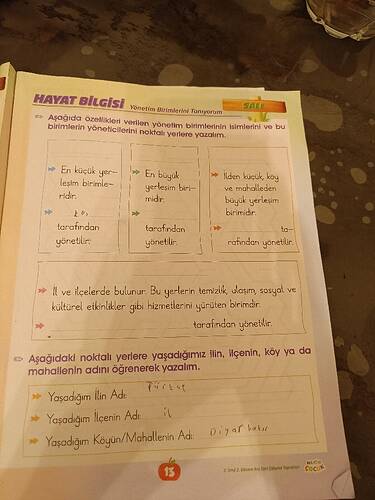 HAYAT BİLGİSİ
Yönetim Birimlerini Tanıyorum
SALI
Aşağıda özellikleri verilen yönetim birimlerinin isimlerini ve bu
birimlerin yöneticilerini noktalı yerlere yazalım.
En küçük yer-
leşim birimle-
ridir.
tarafından
yönetilir.
En büyük
yerleşim biri-
midir.
tarafından
yönetilir.
İlden küçük, köy
ve mahalleden
büyük yerleşim
birimidir.
ta-
rafından yönetilir.
İl ve ilçelerde bulunur. Bu yerlerin temizlik, ulaşım, sosyal ve
kültürel etkinlikler gibi hizmetlerini yürüten birimdir.
tarafından yönetilir.
Aşağıdaki noktalı yerlere yaşadığımız ilin, ilçenin, köy ya da
mahallenin adını öğrenerek yazalım.
Yaşadığım İlin Adı:
Yaşadığım İlçenin Adı: il
Yaşadığım Köyün/Mahallenin Adı:
13
ÇOCUK